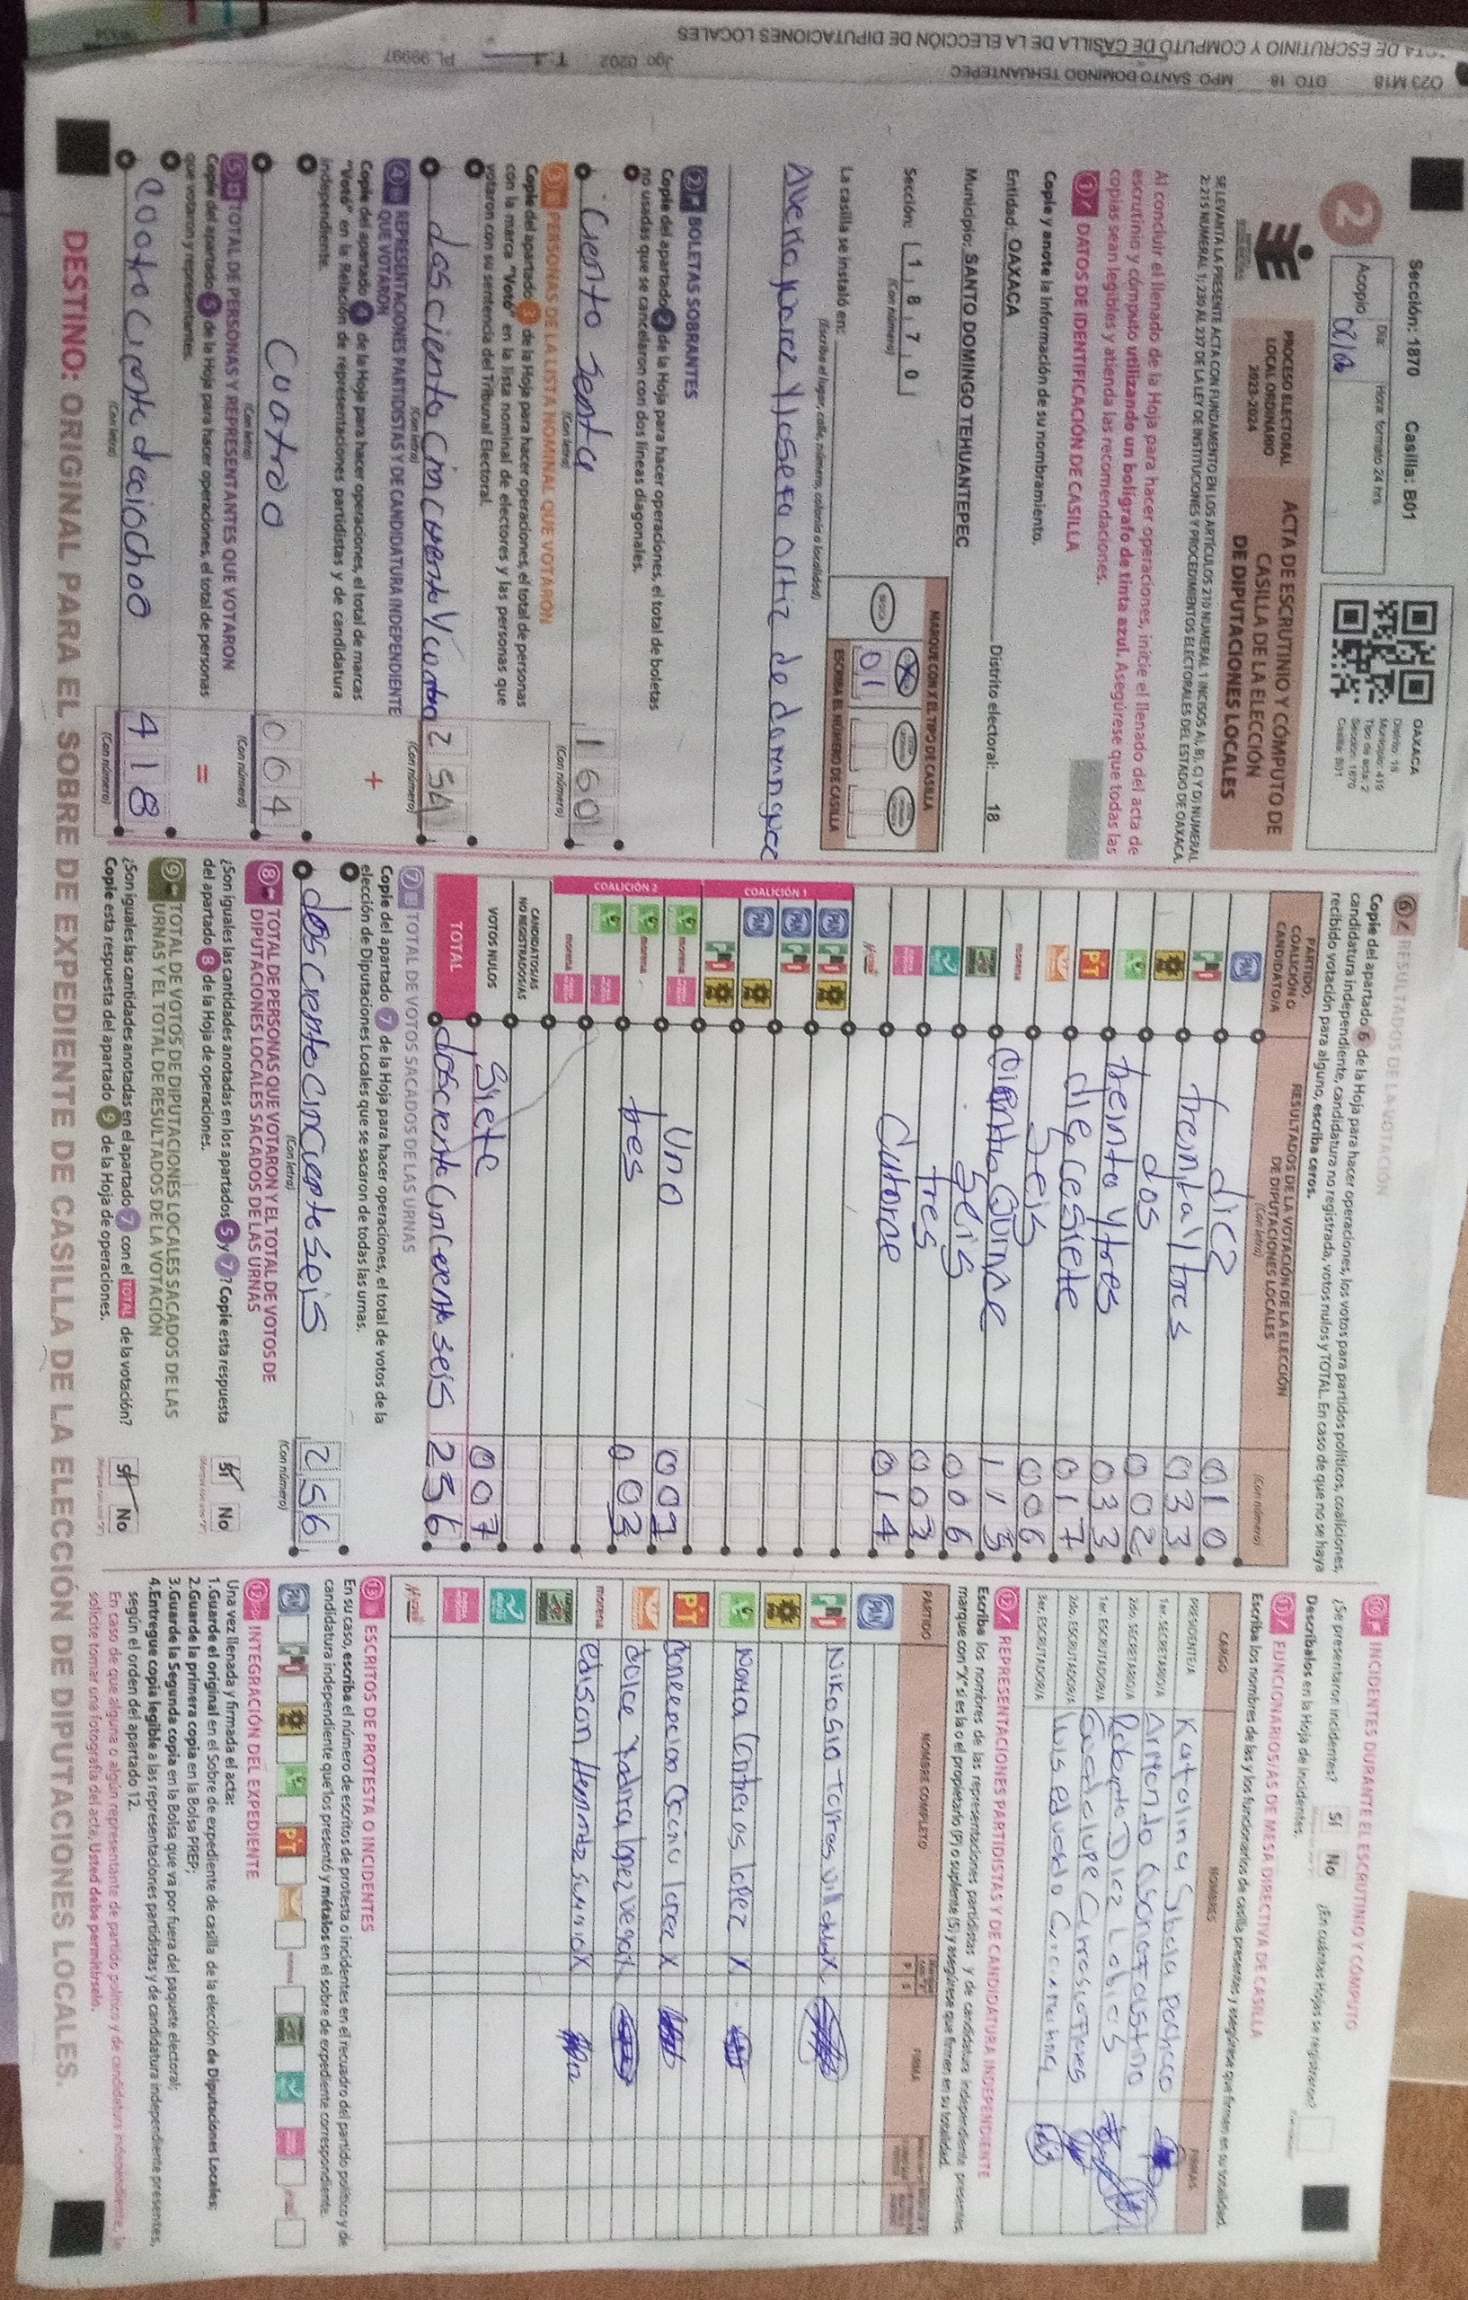 Sección: 1870 Casilla: B01
2
Acopio
Día:
Hora: formato 24 hrs.
OAXACA
Distrito: 18
Municipio: 419
Tipo de acta: 2
Sección: 1870
Casilla: B01
PROCESO ELECTORAL
LOCAL ORDINARIO
2023-2024
ACTA DE ESCRUTINIO Y CÓMPUTO DE
CASILLA DE LA ELECCIÓN
DE DIPUTACIONES LOCALES
SE LEVANTA LA PRESENTE ACTA CON FUNDAMENTO EN LOS ARTÍCULOS 210 NUMERAL 1 INCISOS A), B), C) Y D) NUMERAL
2; 215 NUMERAL 1; 230 AL 237 DE LA LEY DE INSTITUCIONES Y PROCEDIMIENTOS ELECTORALES DEL ESTADO DE OAXACA.
Al concluir el llenado de la Hoja para hacer operaciones, inicie el llenado del acta de
escrutinio y cómputo utilizando un bolígrafo de tinta azul. Asegúrese que todas las
copias sean legibles y atienda las recomendaciones.
1 DATOS DE IDENTIFICACIÓN DE CASILLA
Copie y anote la información de su nombramiento.
Entidad: OAXACA Distrito electoral: 18
Municipio: SANTO DOMINGO TEHUANTEPEC
Sección: 1 8 7 0
(Con número)
MARQUE CON X EL TIPO DE CASILLA
X
01
ESCRIBA EL NÚMERO DE CASILLA
La casilla se instaló en:
(Escriba el lugar, calle, número, colonia o localidad)
Josefa ortiz de domingue
2 BOLETAS SOBRANTES
Copie del apartado 2 de la Hoja para hacer operaciones, el total de boletas
no usadas que se cancelaron con dos líneas diagonales.
Ciento senta 160
(Con letra) (Con número)
3 PERSONAS DE LA LISTA NOMINAL QUE VOTARON
Copie del apartado 3 de la Hoja para hacer operaciones, el total de personas
con la marca "Votó" en la lista nominal de electores y las personas que
votaron con su sentencia del Tribunal Electoral.
dosciento cincuenta Y cuatro 254
(Con letra) (Con número)
4 REPRESENTACIONES PARTIDISTAS Y DE CANDIDATURA INDEPENDIENTE
QUE VOTARON
Copie del apartado 4 de la Hoja para hacer operaciones, el total de marcas
"Votó" en la Relación de representaciones partidistas y de candidatura
independiente.
+
Cuatroo 004
(Con letra) (Con número)
5 TOTAL DE PERSONAS Y REPRESENTANTES QUE VOTARON
Copie del apartado 5 de la Hoja para hacer operaciones, el total de personas
que votaron y representantes.
=
418
(Con letra) (Con número)
6 RESULTADOS DE LA VOTACIÓN
Copie del apartado 6 de la Hoja para hacer operaciones, los votos para partidos políticos, coaliciones,
candidatura independiente, candidatura no registrada, votos nulos y TOTAL. En caso de que no se haya
recibido votación para alguno, escriba ceros.
PARTIDO,
COALICIÓN O
CANDIDATO/A
RESULTADOS DE LA VOTACIÓN DE LA ELECCIÓN
DE DIPUTACIONES LOCALES
(Con letra)
(Con número)
PAN diez 010
PRI treintaItres 033
dos 002
treinta y tres 033
PT diecesiete 017
seis 006
morena Ciento Quince 115
seis 006
tres 003
Catorce 014
COALICIÓN 1
COALICIÓN 2
Uno 001
tres 003
CANDIDATOS/AS
NO REGISTRADOS/AS
VOTOS NULOS Siete 007
TOTAL 256
7 TOTAL DE VOTOS SACADOS DE LAS URNAS
Copie del apartado 7 de la Hoja para hacer operaciones, el total de votos de la
elección de Diputaciones Locales que se sacaron de todas las urnas.
256
(Con letra) (Con número)
8 TOTAL DE PERSONAS QUE VOTARON Y EL TOTAL DE VOTOS DE
DIPUTACIONES LOCALES SACADOS DE LAS URNAS
¿Son iguales las cantidades anotadas en los apartados 5 y 7? Copie esta respuesta
del apartado 8 de la Hoja de operaciones.
Sí No
9 TOTAL DE VOTOS DE DIPUTACIONES LOCALES SACADOS DE LAS
URNAS Y EL TOTAL DE RESULTADOS DE LA VOTACIÓN
¿Son iguales las cantidades anotadas en el apartado 7 con el TOTAL de la votación?
Copie esta respuesta del apartado 9 de la Hoja de operaciones.
Sí No
10 INCIDENTES DURANTE EL ESCRUTINIO Y CÓMPUTO
¿Se presentaron incidentes? Sí No ¿En cuántas Hojas se registraron?
Descríbalos en la Hoja de incidentes.
11 FUNCIONARIOS/AS DE MESA DIRECTIVA DE CASILLA
Escriba los nombres de las y los funcionarios de casilla presentes y asegúrese que firmen en su totalidad.
CARGO NOMBRES FIRMAS
PRESIDENTE/A Katalina Sibaja pacheco
1er. SECRETARIO/A Armondo
2do. SECRETARIO/A Roberto Diez
1er. ESCRUTADOR/A Guadalupe Carrasco Flores
2do. ESCRUTADOR/A luis eduardo
3er. ESCRUTADOR/A
12 REPRESENTACIONES PARTIDISTAS Y DE CANDIDATURA INDEPENDIENTE
Escriba los nombres de las representaciones partidistas y de candidatura independiente presentes,
marque con "X" si es la o el propietario (P) o suplente (S) y asegúrese que firmen en su totalidad.
PARTIDO NOMBRE COMPLETO P S FIRMA
PAN
PRI Nikosio Torres X
Norma lopez X
PT Concepcion lopez X
dolce Yadira lopez vega X
morena edison X
13 ESCRITOS DE PROTESTA O INCIDENTES
En su caso, escriba el número de escritos de protesta o incidentes en el recuadro del partido político y de
candidatura independiente que los presentó y métalos en el sobre de expediente correspondiente.
PAN PRI PT
12 INTEGRACIÓN DEL EXPEDIENTE
Una vez llenada y firmada el acta:
1.Guarde el original en el Sobre de expediente de casilla de la elección de Diputaciones Locales;
2.Guarde la primera copia en la Bolsa PREP;
3.Guarde la Segunda copia en la Bolsa que va por fuera del paquete electoral;
4.Entregue copia legible a las representaciones partidistas y de candidatura independiente presentes,
según el orden del apartado 12.
En caso de que alguna o algún representante de partido político y de candidatura independiente, le
solicite tomar una fotografía del acta, Usted debe permitírselo.
DESTINO: ORIGINAL PARA EL SOBRE DE EXPEDIENTE DE CASILLA DE LA ELECCIÓN DE DIPUTACIONES LOCALES.
O23 M18 DTO 18 MPO: SANTO DOMINGO TEHUANTEPEC
DE ESCRUTINIO Y COMPUTO DE CASILLA DE LA ELECCIÓN DE DIPUTACIONES LOCALES
Jgo: 0202 PL 99997